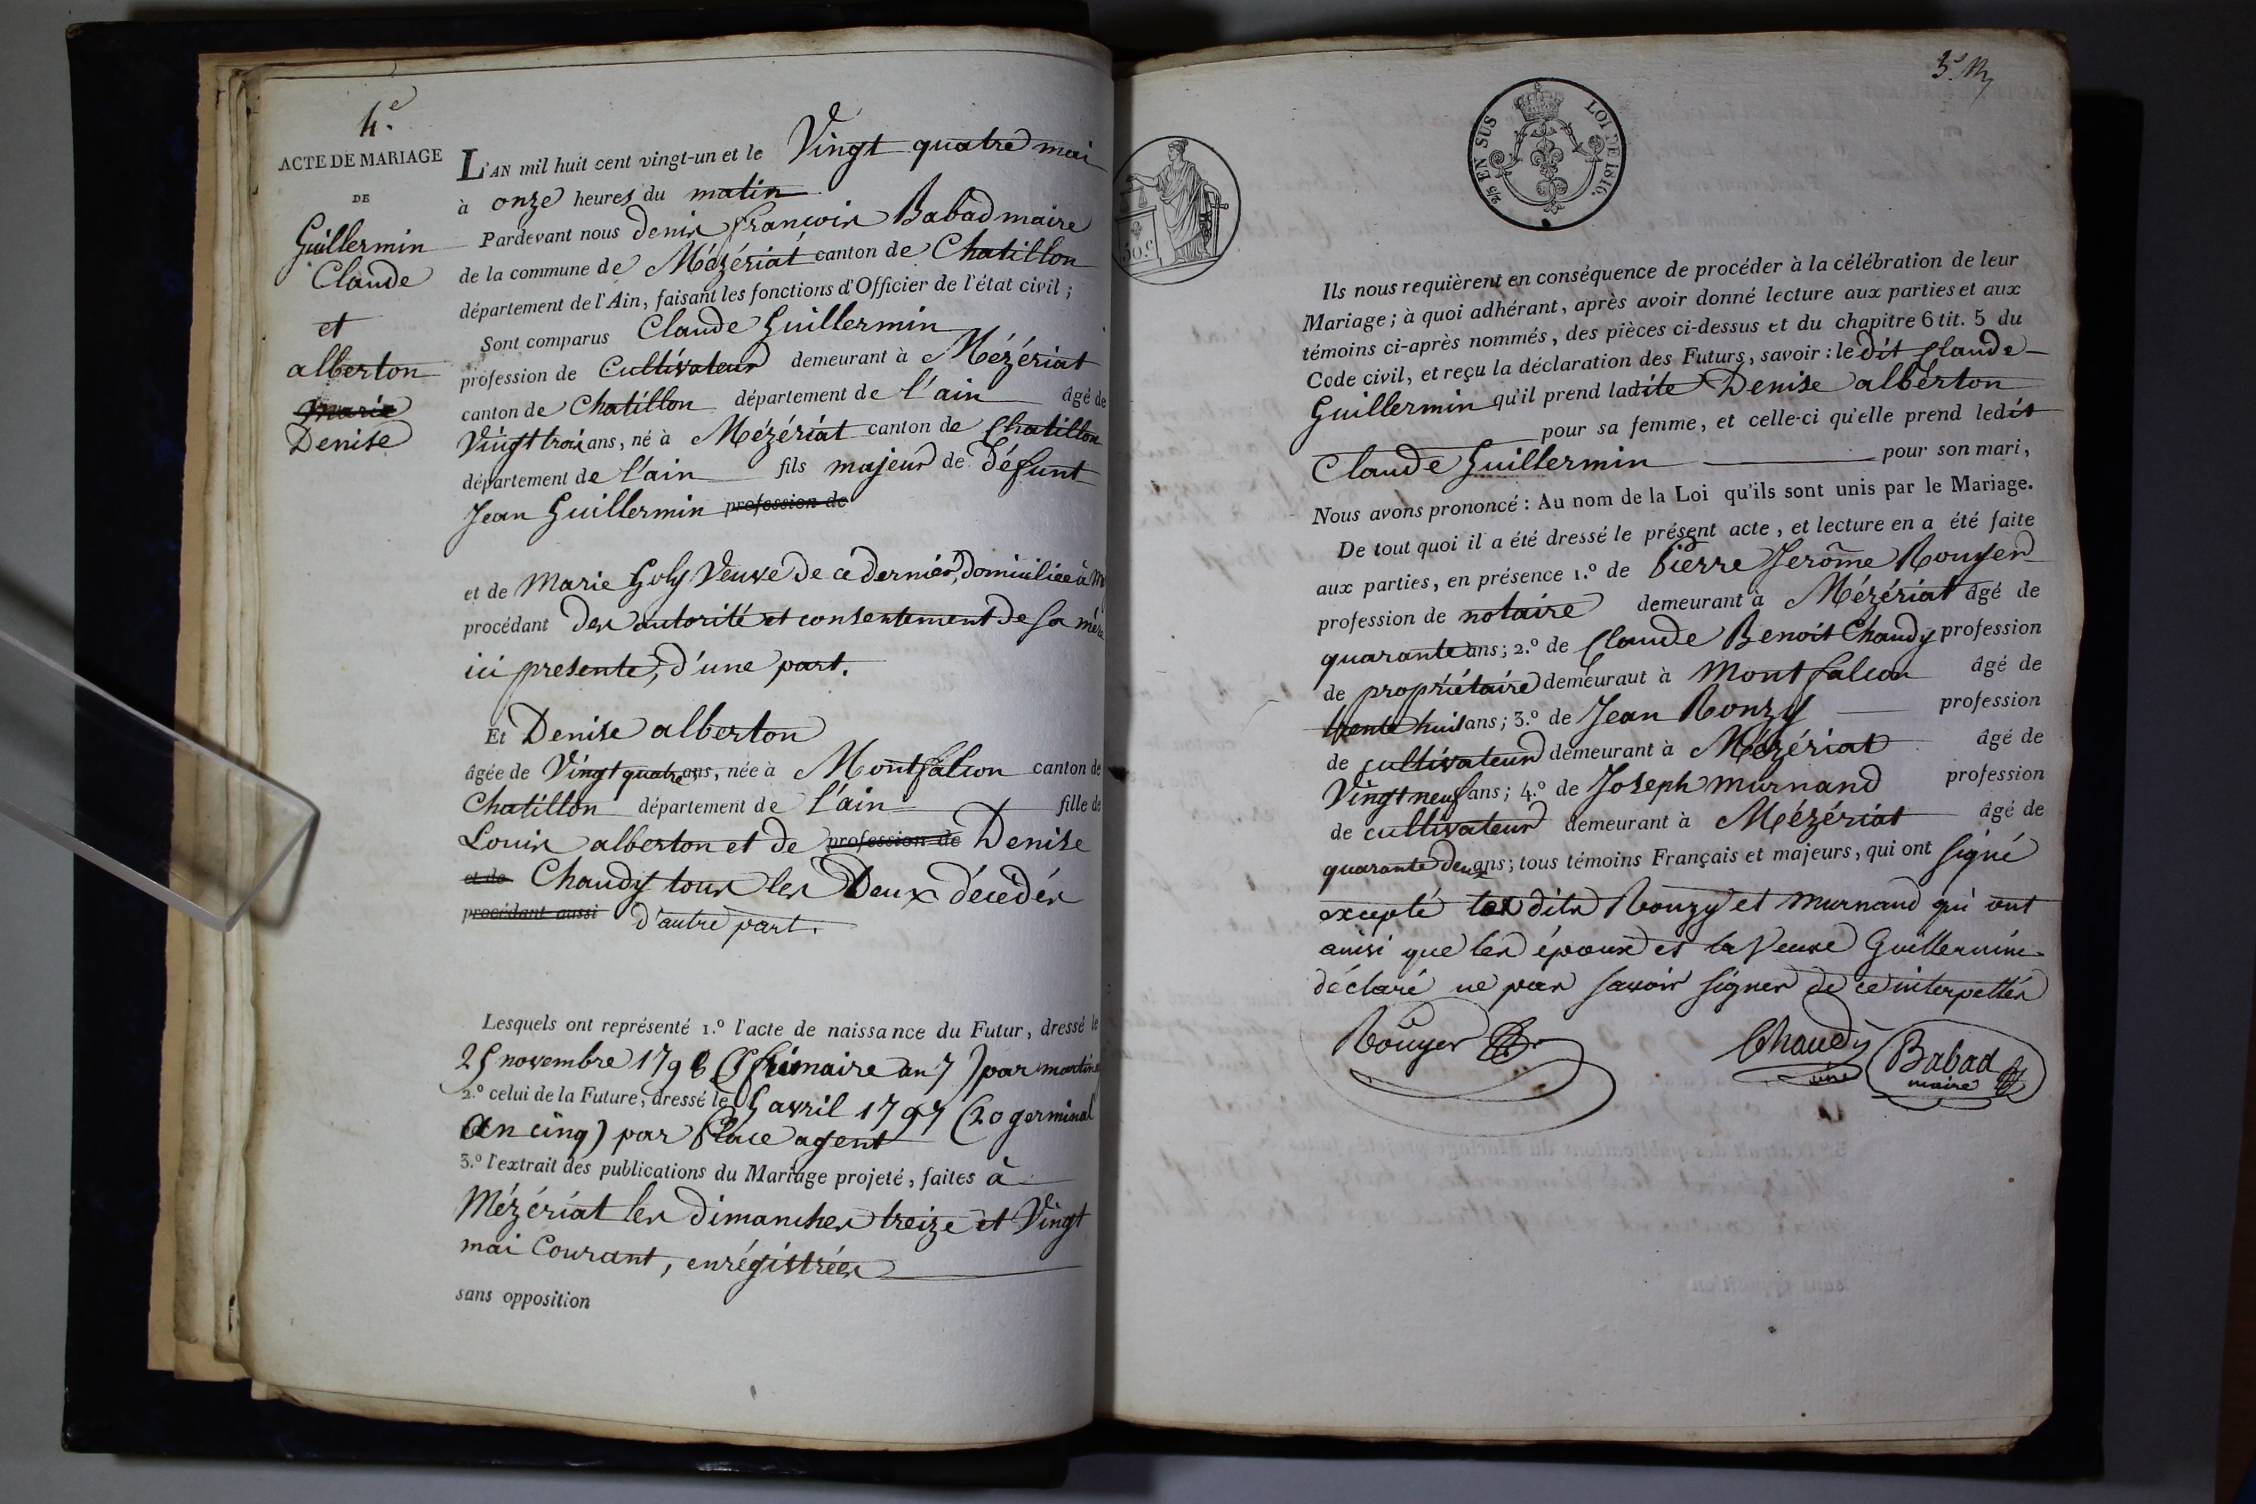 4.e
ACTE DE MARIAGE
DE
Guillermin
Claude
et
alberton
Marie
Denise
L'AN mil huit cent vingt-un et le Vingt quatre mai
à onze heures du matin
Pardevant nous denis françois Babad maire
de la commune de Mézériat canton de Chatillon
département de l'Ain, faisant les fonctions d'Officier de l'état civil ;
Sont comparus Claude Guillermin
profession de Cultivateur demeurant à Mézériat
canton de Chatillon département de l'ain âgé de
Vingt trois ans, né à Mézériat canton de Chatillon
département de l'ain fils majeur de défunt
Jean Guillermin profession de
et de Marie Goly Veuve de ce dernier, domiciliée à
procédant des autorité et consentement de sa mère
ici presente, d'une part.
Et Denise alberton
âgée de Vingt quatre ans, née à Montfalcon canton de
Chatillon département de l'ain fille de
Louis alberton et de profession de Denise
et de Chaudy tous les Deux décédés
procédant aussi d'autre part.
Lesquels ont représenté 1.º l'acte de naissance du Futur, dressé le
25 novembre 1798 (5 frimaire an 7) par martin
2.º celui de la Future, dressé le 9 avril 1797 (20 germinal
an cinq) par Place agent
3.º l'extrait des publications du Mariage projeté, faites à
Mézériat les dimanches treize et Vingt
mai Courant, enrégistrées
sans opposition
50.c
2/5 EN SUS LOI DE 1816.
3.e
Ils nous requièrent en conséquence de procéder à la célébration de leur
Mariage ; à quoi adhérant, après avoir donné lecture aux parties et aux
témoins ci-après nommés, des pièces ci-dessus et du chapitre 6 tit. 5 du
Code civil, et reçu la déclaration des Futurs, savoir : le dit Claude
Guillermin qu'il prend ladite Denise alberton
pour sa femme, et celle-ci qu'elle prend ledit
Claude Guillermin pour son mari,
Nous avons prononcé : Au nom de la Loi qu'ils sont unis par le Mariage.
De tout quoi il a été dressé le présent acte, et lecture en a été faite
aux parties, en présence 1.º de Pierre Jerôme Rouyer
profession de notaire demeurant à Mézériat âgé de
quarante ans ; 2.º de Claude Benoit Chaudy profession
de propriétaire demeuraut à Montfalcon âgé de
trente huit ans ; 3.º de Jean Ronzy profession
de cultivateur demeurant à Mézériat âgé de
Vingt neuf ans ; 4.º de Joseph murnand profession
de cultivateur demeurant à Mézériat âgé de
quarante deux ans ; tous témoins Français et majeurs, qui ont signé
excepté les dits Ronzy et murnand qui ont
ainsi que les époux et la Veuve Guillermin
déclaré ne pas savoir signer de ce interpellés
Rouyer Chaudy Babad
maire